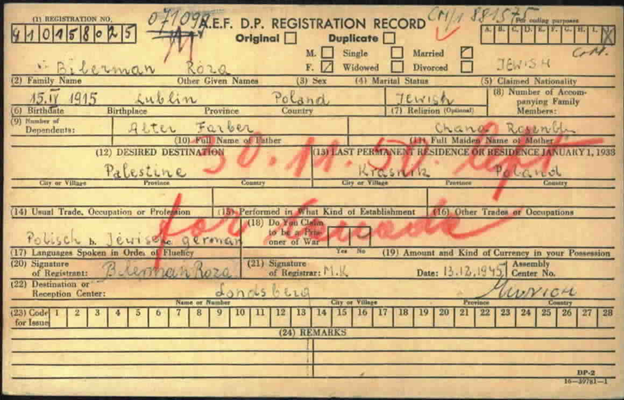 (1) REGISTRATION NO. A.E.F. D.P. REGISTRATION RECORD CM/1 881575
G10158025 For coding purposes
Original ☐ Duplicate ☐ A. B. C. D. E. F. G. H. I. J.
M. ☐ Single ☐ Married ☑
Biberman Róża F. ☑ Widowed ☐ Divorced ☐ JEWISH
(2) Family Name Other Given Names (3) Sex (4) Marital Status (5) Claimed Nationality
15.IV 1915 Lublin Poland Jewish (8) Number of Accompanying Family Members:
(6) Birthdate Birthplace Province Country (7) Religion (Optional)
(9) Number of Dependents: Alter Farber Chana
(10) Full Name of Father (11) Full Maiden Name of Mother
(12) DESIRED DESTINATION (13) LAST PERMANENT RESIDENCE OR RESIDENCE JANUARY 1, 1938
Palestine Kraśnik Poland
City or Village Province Country City or Village Province Country
30.11.50. dept
for Canada
(14) Usual Trade, Occupation or Profession (15) Performed in What Kind of Establishment (16) Other Trades or Occupations
Polisch b. Jewisch c. german (18) Do You Claim to be a Prisoner of War Yes No
(17) Languages Spoken in Order of Fluency (19) Amount and Kind of Currency in your Possession
(20) Signature of Registrant: Biberman Roza (21) Signature of Registrar: M.K Date: 13.12.1945 Assembly Center No.
(22) Destination or Reception Center: Landsberg Munich
Name or Number City or Village Province Country
(23) Code for Issue 1 2 3 4 5 6 7 8 9 10 11 12 13 14 15 16 17 18 19 20 21 22 23 24 25 26 27 28
(24) REMARKS
DP-2
16—39781-1